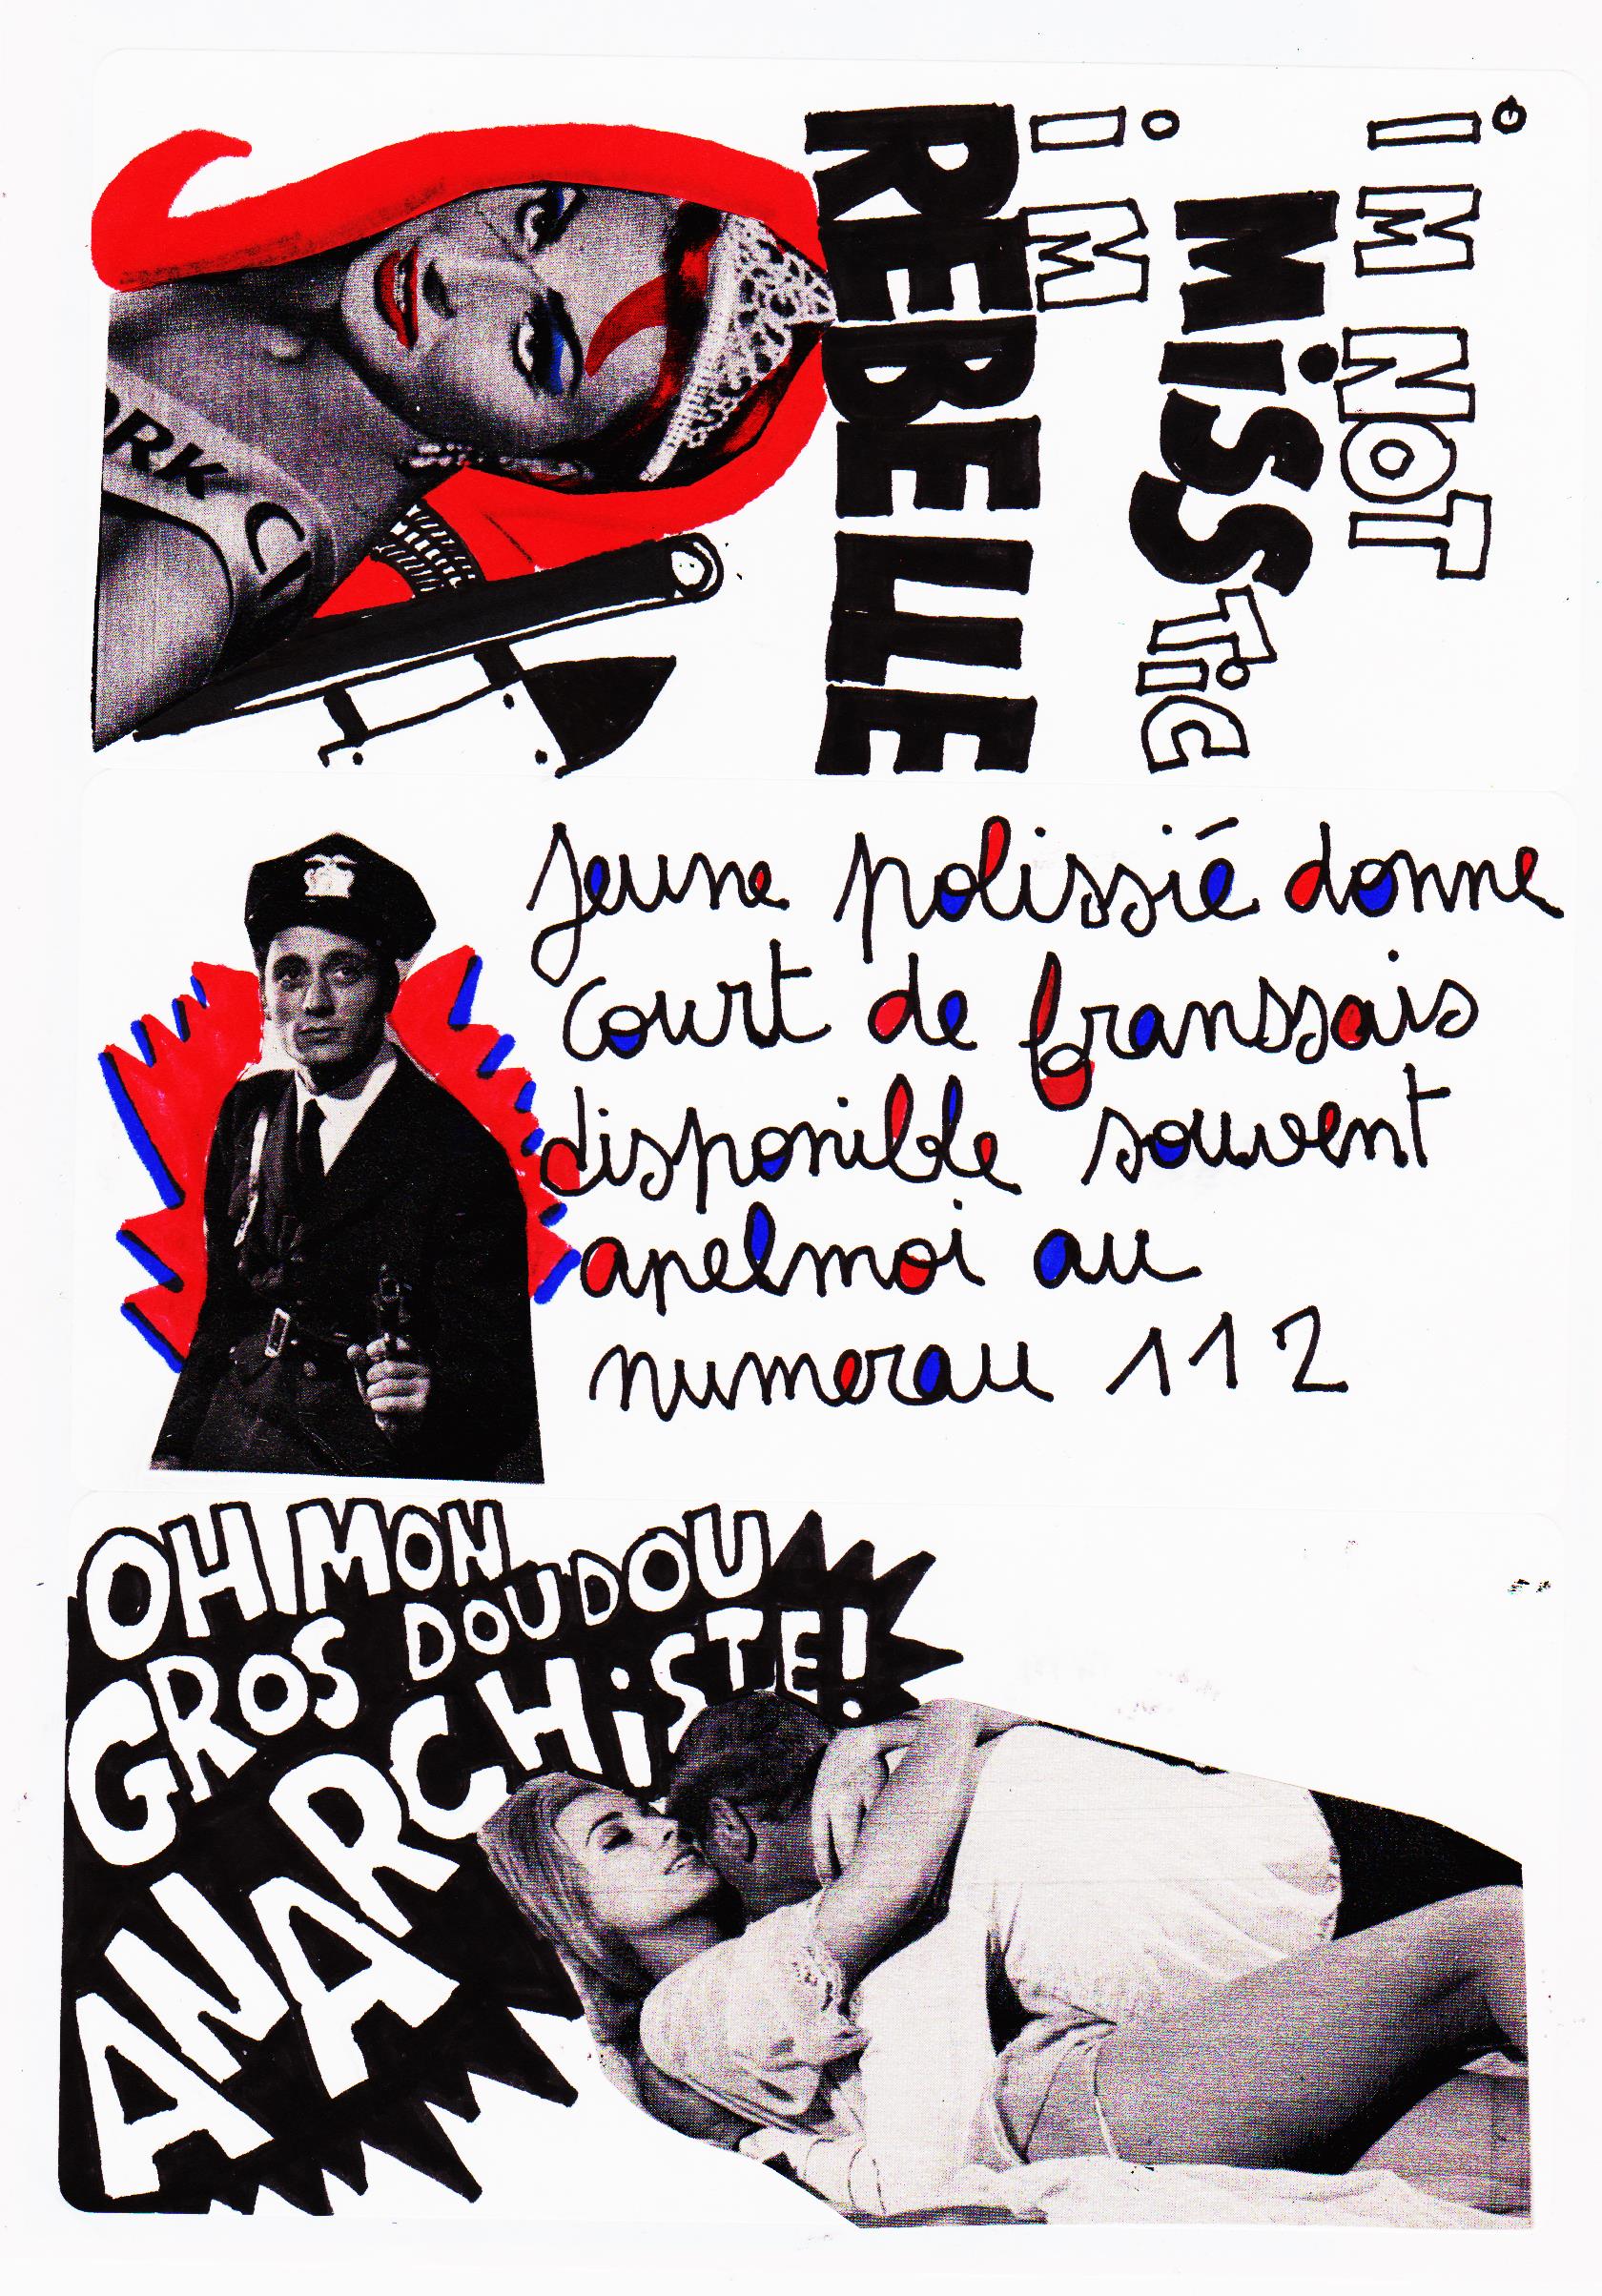 I M NOT
MiSSTiC
i M
REBELLE
ORK CI
jeune polissié donne
court de franssais
disponible souvent
apelmoi au
numerau 112
OH MON
GROS DOUDOU
ANARCHiSTE!